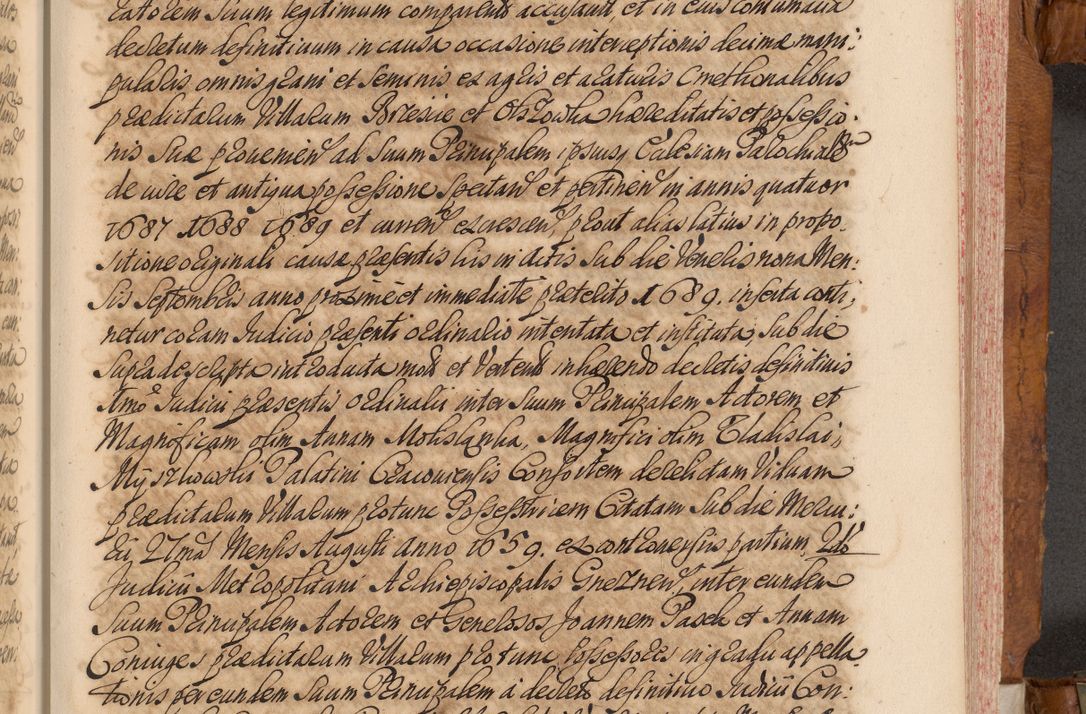 ratorem suum legitimum comparens accusavit, et in eius contumacia
decretum definitivum in causa occasione interceptionis decimæ mani:
pularis omnis grani et seminis ex agris et araturis Cmethonalibus
prædictarum Villarum Brzesie et Olszowka hæreditatis et possessio:
nis suæ provenien ad suum Principalem ipsiusq Eclesiam Parochialem
de iure et antiqua possessione spectan et pertinen in annis quatuor
1687 1688 1689 et curren excrescen, prout alias latius in propo:
sitione originali causæ præsentis his in actis sub die Veneris nona Men:
sis Septembris anno proxime et immediate præterito 1689. inserta conti:
netur coram Judicio præsenti ordinario intentata et instituta, sub die
supra descripta introducta mota et vertent inhærendo decretis definitivis
Imo Judicii præsentis ordinarii inter suum Principalem Actorem et
Magnificam olim Annam Mohilanka, Magnifici olim Vladislai
Myszkowski Palatini Cracoviensis Consortem derelictam Viduam
prædictarum Villarum protunc Possessricem Citatam sub die Mercu:
rii 27ma Mensis Augusti Anno 1659. ex controversiis partium, 2do
Judicii Metropolitani Archiepiscopalis Gneznen, inter eundem
suum Principalem Actorem et Generosos Joannem Pasek et Annam
Coniuges prædictarum Villarum protunc Possessores in gradu appella
tionis per eundem suum Principalem a decreto definitivo Judicii Con: